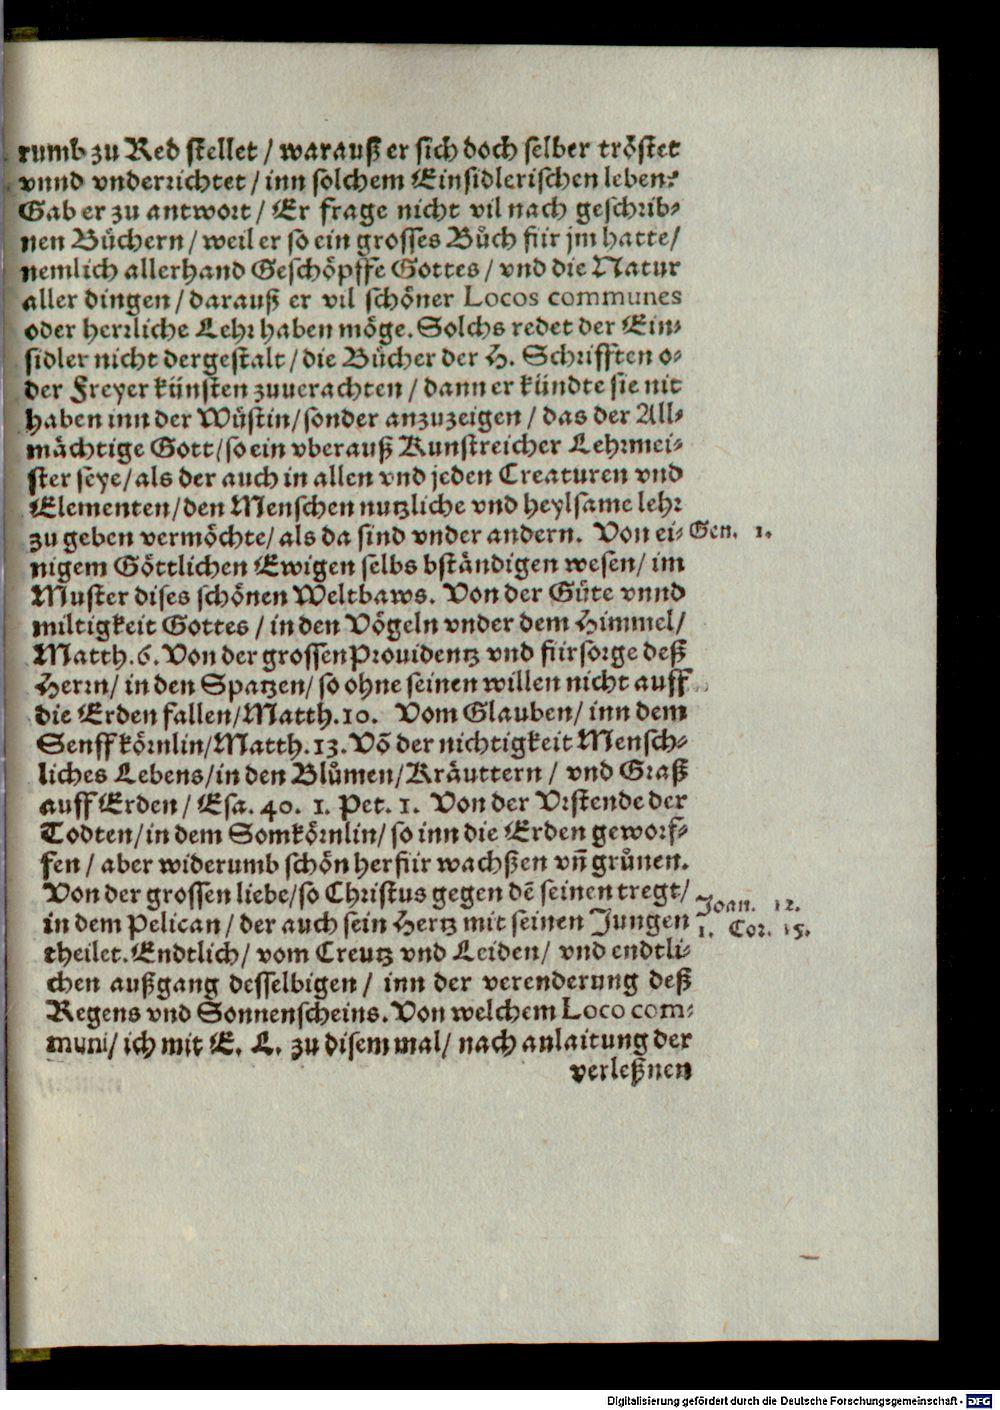 rumb zu Red stellet / warauß er sich doch selber tröstet
vnnd vnderrichtet / inn solchem Einsidlerischen leben?
Gab er zu antwort / Er frage nicht vil nach geschrib-
nen Bůchern / weil er so ein grosses Bůch für jm hatte /
nemlich allerhand Geschöpffe Gottes / vnd die Natur
aller dingen / darauß er vil schöner Locos communes
oder herrliche Lehr haben möge. Solchs redet der Ein-
sidler nicht dergestalt / die Bücher der H. Schrifften o-
der Freyer künsten zuuerachten / dann er kündte sie nit
haben inn der Wüstin / sonder anzuzeigen / das der All-
mächtige Gott / so ein vberauß Kunstreicher Lehrmei-
ster seye / als der auch in allen vnd jeden Creaturen vnd
Elementen / den Menschen nutzliche vnd heylsame lehr
zu geben vermöchte / als da sind vnder andern. Von ei- Gen. 1.
nigem Göttlichen Ewigen selbs bständigen wesen / im
Muster dises schönen Weltbaws. Von der Güte vnnd
miltigkeit Gottes / in den Vögeln vnder dem Himmel /
Matth. 6. Von der grossen Prouidentz vnd fürsorge deß
Herrn / in den Spatzen / so ohne seinen willen nicht auff
die Erden fallen / Matth. 10. Vom Glauben / inn dem
Senffkörnlin / Matth. 13. Võ der nichtigkeit Mensch-
liches Lebens / in den Blůmen / Kräuttern / vnd Graß
auff Erden / Esa. 40. 1. Pet. 1. Von der Vrstende der
Todten / in dem Somkörnlin / so inn die Erden geworf-
fen / aber widerumb schön herfür wachßen vñ grůnen.
Von der grossen liebe / so Christus gegen dē seinen tregt / Joan. 12.
in dem Pelican / der auch sein Hertz mit seinen Jungen 1. Cor. 15.
theilet. Endtlich / vom Creutz vnd Leiden / vnd endtli-
chen außgang desselbigen / inn der verenderung deß
Regens vnd Sonnenscheins. Von welchem Loco com-
muni / ich mit E. L. zu disem mal / nach anlaitung der
verleßnen
Digitalisierung gefördert durch die Deutsche Forschungsgemeinschaft - DFG